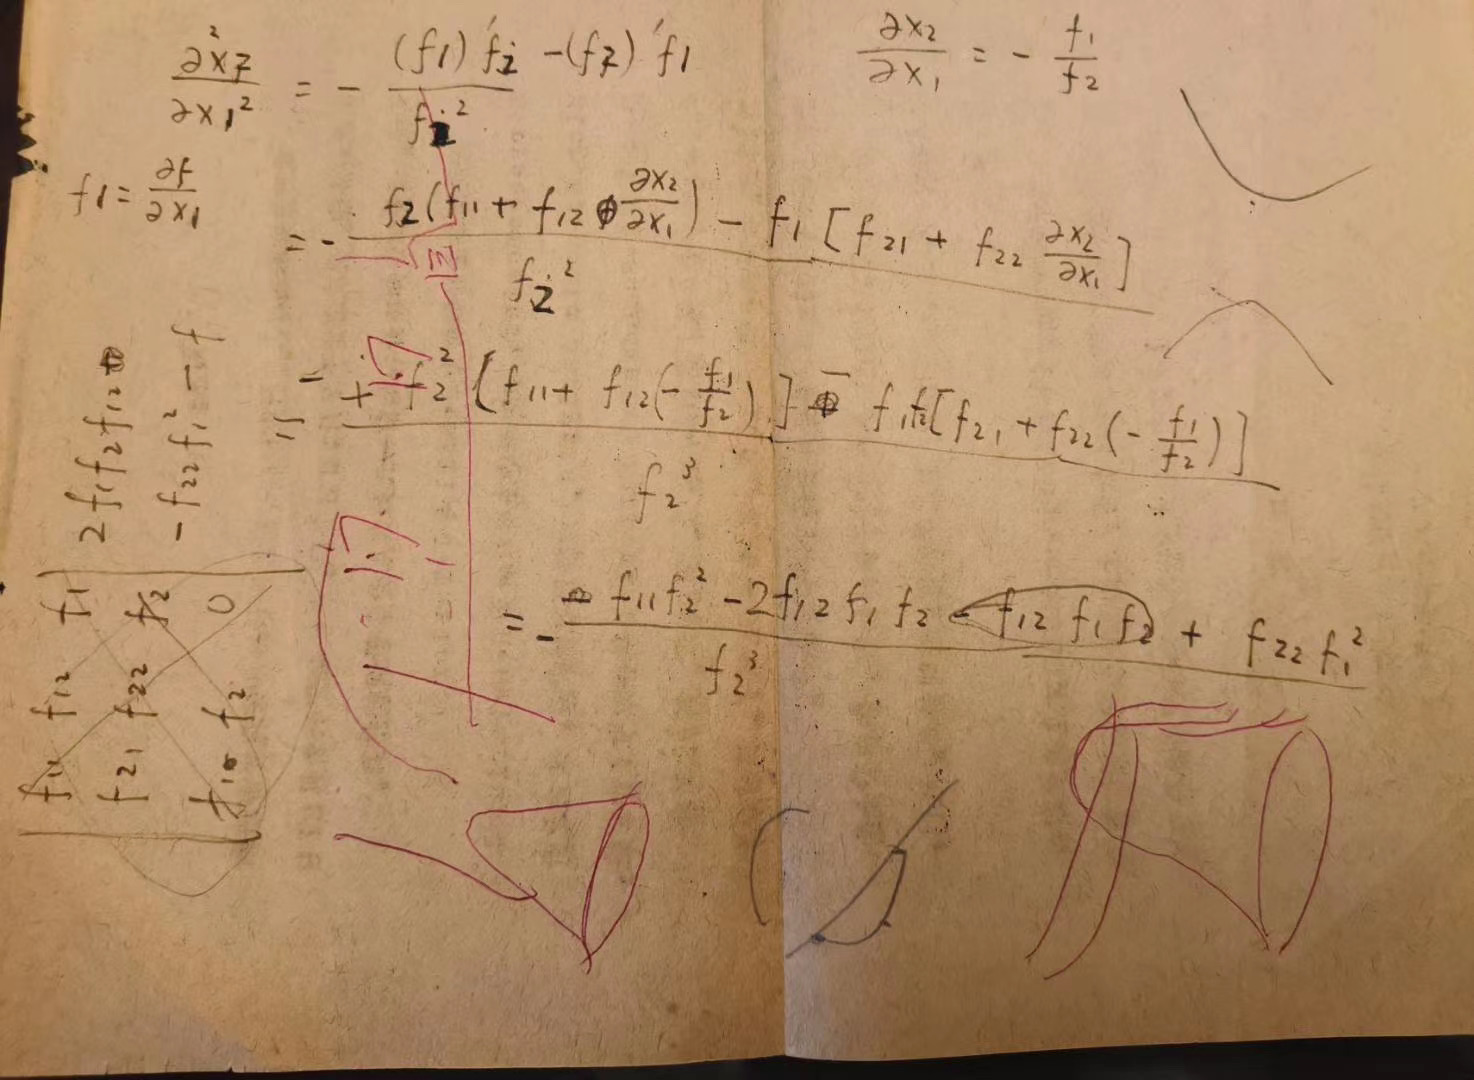 ∂²x₂/∂x₁² = - ((f1)' f₂ - (f₂)' f1)/f₂²
∂x₂/∂x₁ = - f₁/f₂
f1 = ∂f/∂x₁
= - (f₂(f₁₁ + f₁₂ ∂x₂/∂x₁) - f₁[f₂₁ + f₂₂ ∂x₂/∂x₁])/f₂²
= - (f₂²[f₁₁ + f₁₂(- f₁/f₂)] - f₁f₂[f₂₁ + f₂₂(- f₁/f₂)])/f₂³
= - (f₁₁f₂² - 2f₁₂f₁f₂ - f₁₂f₁f₂ + f₂₂f₁²)/f₂³
2f₁f₂f₁₂
- f₂₂f₁² - f
f₁₁ f₁₂ f₁
f₂₁ f₂₂ f₂
f₂ 0